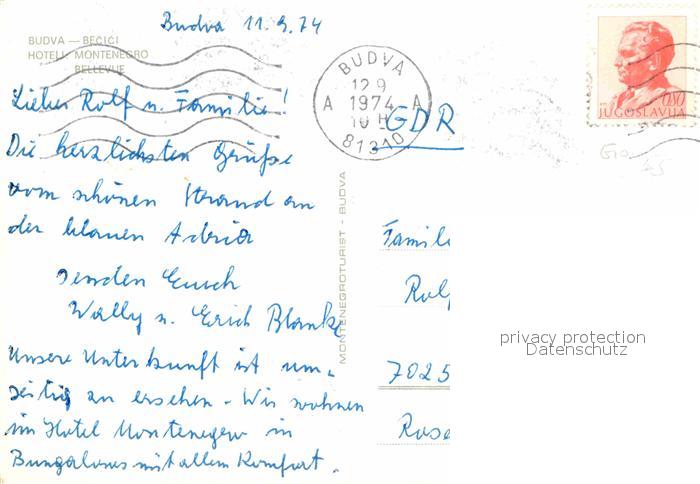 Budva 11.9.74
BUDVA — BEČIĆI
HOTELI: MONTENEGRO
BELLEVUE
Lieber Rolf u. Familie!
Die herzlichsten Grüße
vom schönen Strand an
der blauen Adria
senden Euch
Wally u. Erich Blanke
Unsere Unterkunft ist um-
seitig zu ersehen. Wir wohnen
im Hotel Montenegro in
Bungalows mit allem Komfort.
MONTENEGROTURIST - BUDVA
BUDVA
12 9
A 1974 A
10 H
81310
GDR
0,80
JUGOSLAVIJA
Famil
Rolf
7025
Rose
privacy protection
Datenschutz